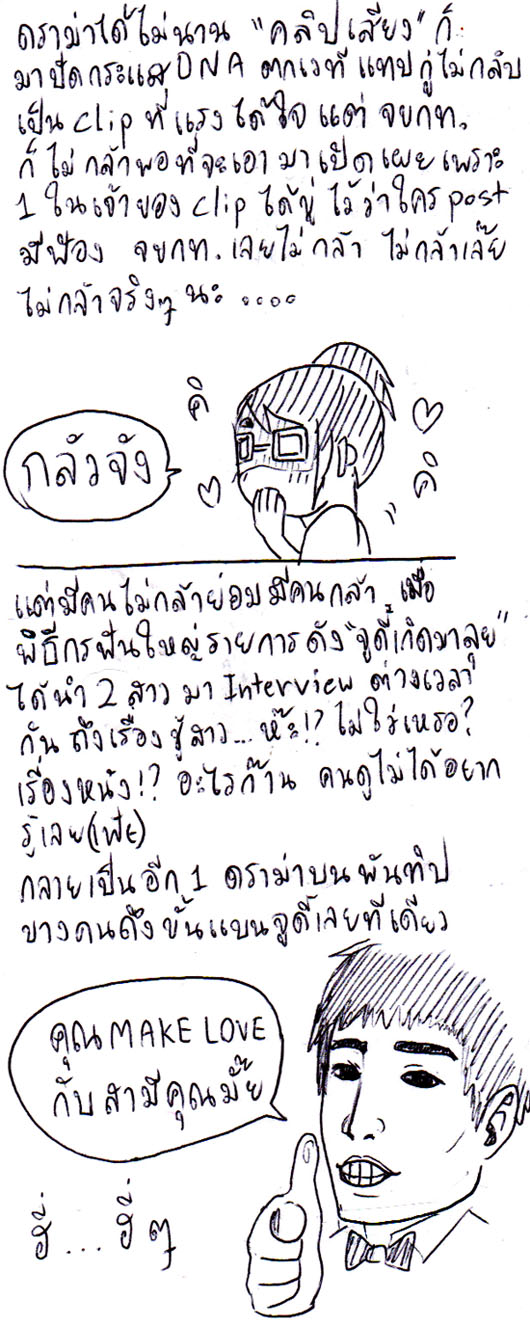 ดราม่าได้ไม่นาน "คลิปเสียง" ก็
มาปัดกระแส DNA ตกเวที แทบกู่ไม่กลับ
เป็น clip ที่แรงได้ใจ แต่ จขกท.
ก็ไม่กล้าพอที่จะเอามาเปิดเผยเพราะ
1 ในเจ้าของ clip ได้ขู่ไว้ว่าใคร post
มีฟ้อง จขกท. เลยไม่กล้า ไม่กล้าเล๊ย
ไม่กล้าจริงๆ นะ ....
คิ
กลัวจัง
คิ
แต่มีคนไม่กล้าย่อมมีคนกล้า เมื่อ
พิธีกรฟันใหญ่รายการดัง "จูดี้เกิดมาลุย"
ได้นำ 2 สาว มา Interview ต่างเวลา
กัน ถึงเรื่องชู้สาว... ห๊ะ!? ไม่ใช่เหรอ?
เรื่องหนัง!? อะไรก๊าน คนดูไม่ได้อยาก
รู้เลย (เฟ้ย)
กลายเป็นอีก 1 ดราม่าบนพันทิป
บางคนถึงขั้นแบนจูดี้เลยทีเดียว
คุณ MAKE LOVE
กับสามีคุณมั๊ย
ฮี่... ฮี่ๆ